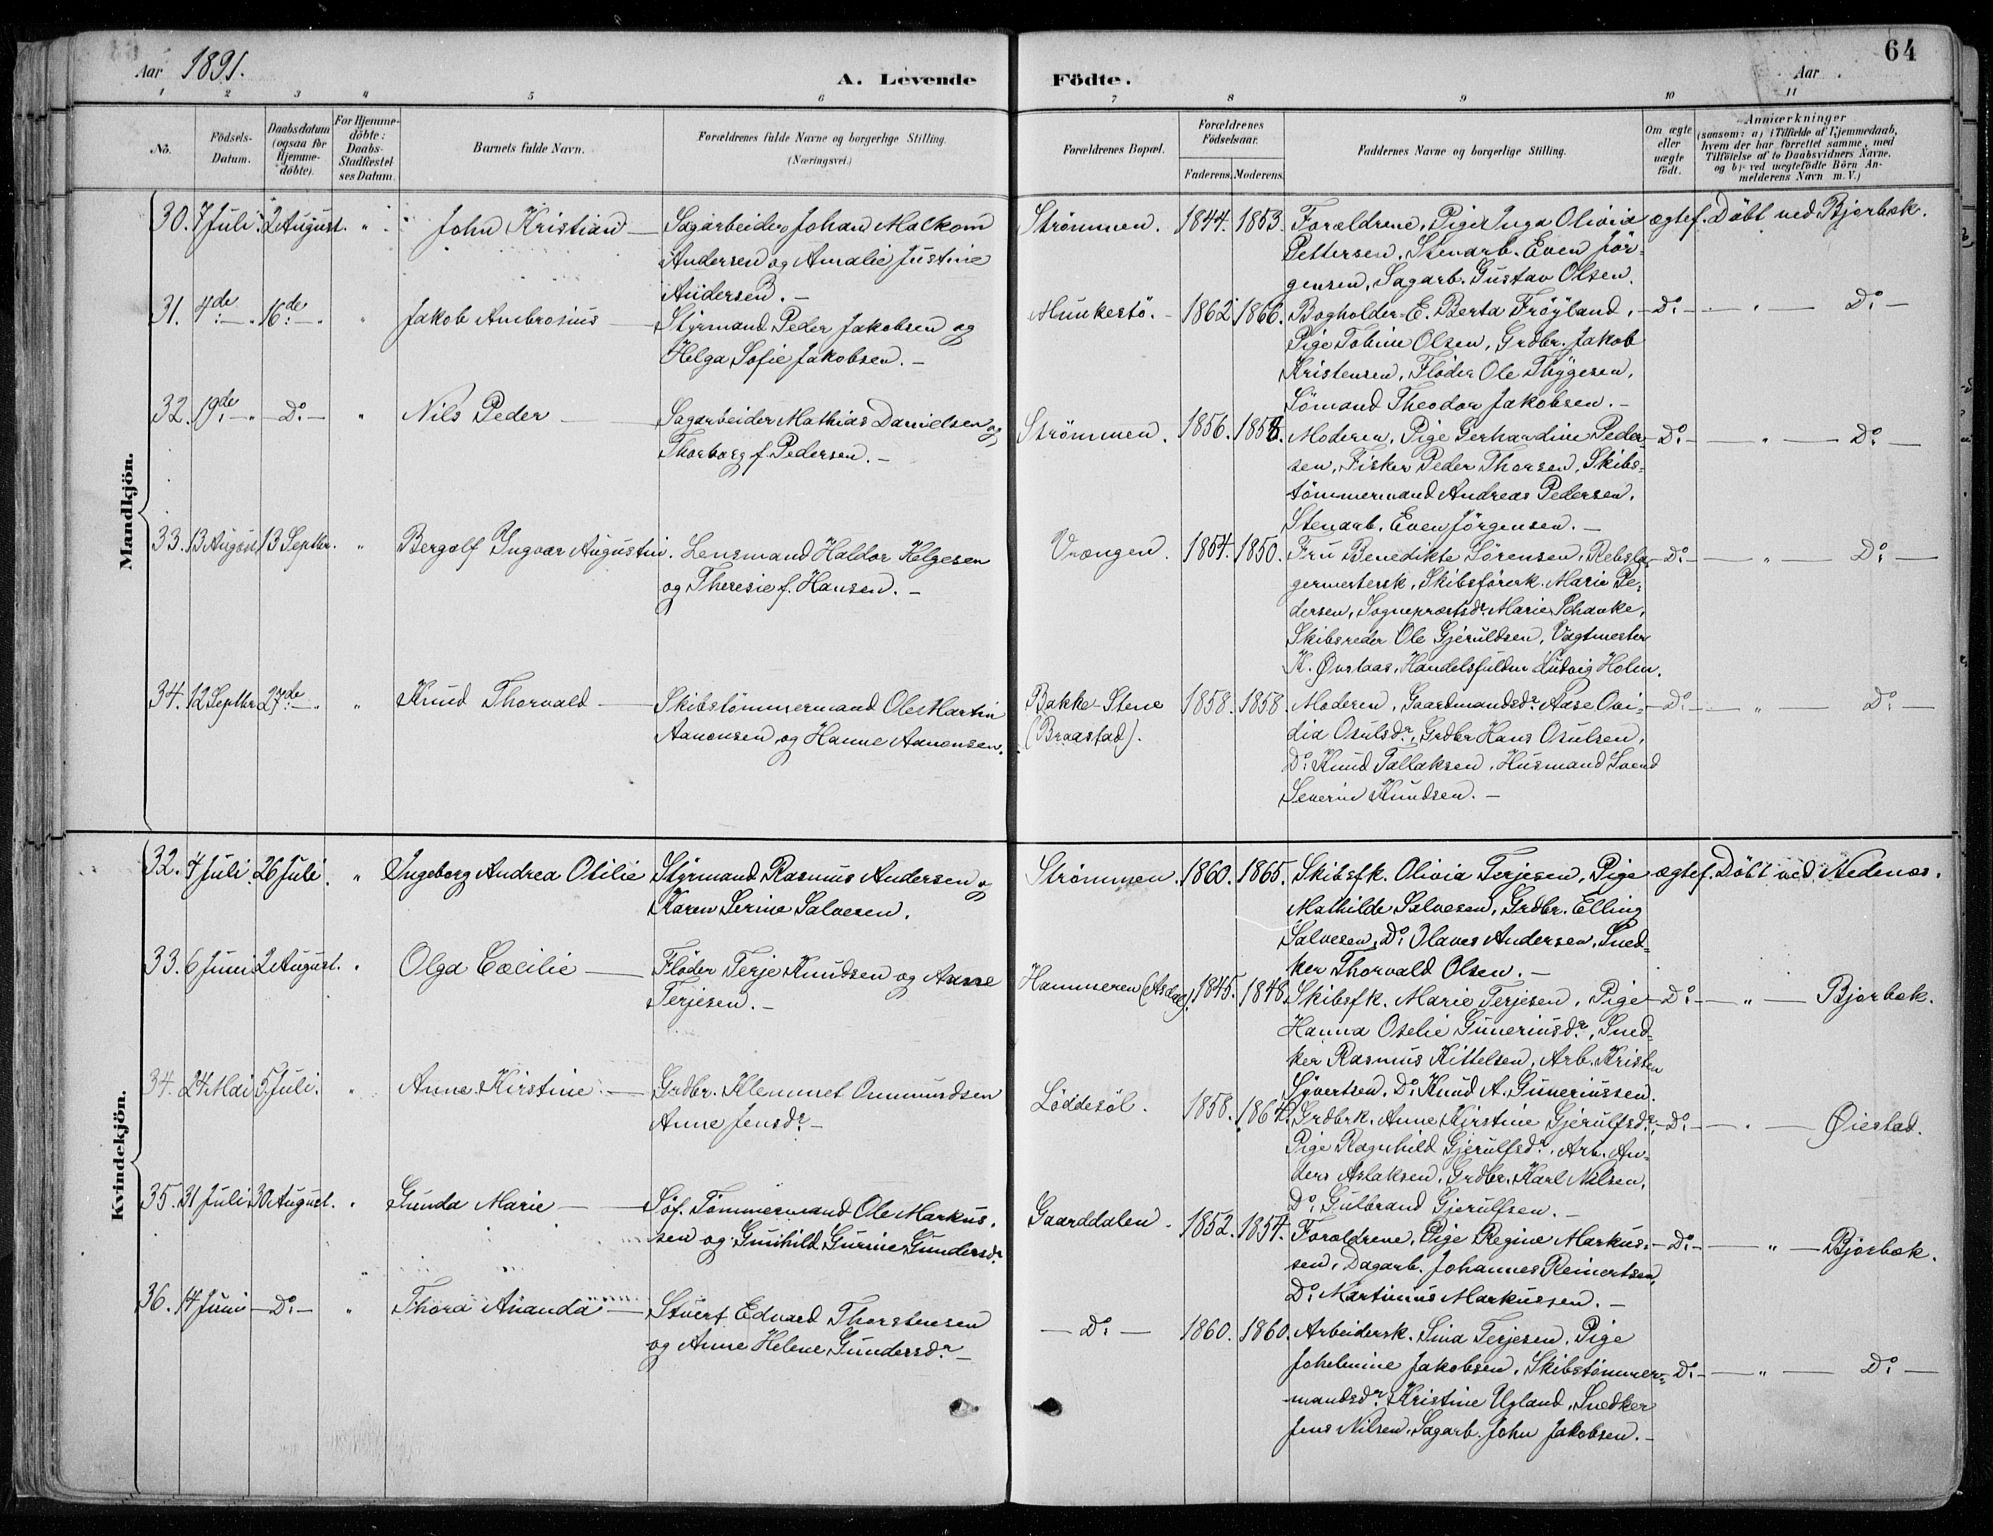 Aar 1891.
A. Levende Födte.
Aar
64
1 2 3 4 5 6 7 8 9 10 11
No.
Födsels-Datum.
Daabsdatum (ogsaa for Hjemme-döbte).
For Hjemme-döbte: Daabs-Stadfæstelses Datum.
Barnets fulde Navn.
Forældrenes fulde Navne og borgerlige Stilling. (Næringsvei.)
Forældrenes Bopæl.
Forældrenes Födselsaar.
Faderens. Moderens.
Faddernes Navne og borgerlige Stilling.
Om ægte eller uægte födt.
Anmærkninger
(saasom: a) i Tilfælde af Hjemmedaab, hvem der har forrettet samme, med Tilföielse af to Daabsvidners Navne, og b) ved uægtefödte Börn Anmelderens Navn m. V.)
Mandkjön.
30. 7 Juli. 2 August. " John Kristian — Sagarbeider Johan Malkom
Andersen og Amalie Justine
Andersen. —
Strømmen. 1844. 1853. Forældrene, Pige Inga Olivia ægtef. Døbt ved Bjorbæk.
Pettersen, Stenarb. Even Jör-
gensen, Sagarb. Gustav Olsen.
31. 4de — " 16de — " " Jakob Ambrosius — Styrmand Peder Jakobsen og
Helga Sofie Jakobsen. —
Munkestö. — 1862 1866. Bogholder-E. Berta Fröyland, — Do — " — Do —
Pige Tobine Olsen, Grdbr. Jakob
Kristensen, Fløder Ole Thygesen,
Sömand Theodor Jakobsen. —
32. 19de — " Do — " Nils Peder — Sagarbeider Mathias Danielsen og
Thorborg f. Pedersen. —
Strømmen. 1856. 1858. Moderen, Pige Gerhardine Peder- — Do — " — Do —
sen, Fisker Peder Thorsen, Skibs-
tömmermand Andreas Pedersen,
Stenarb. Even Jörgensen. —
33. 13 August 13 Septbr. " Bergolf Yngvar Augustin. Lensmand Haldor Helgesen
og Theresie f. Hansen. —
Vrængen. 1854. 1850. Fru Benedikte Sörensen, Rebsla- — Do — " — Do —
germestersk, Skibsförerk. Marie Pe-
dersen, Sognepræstsdr. Marie Schanke,
Skibsreder Ole Gjeruldsen, Vagtmester
K. Øvstaas, Handelsfuldm. Ludvig Holm.
34. 12 Septbr 27de — " " Knud Thorvald — Skibstømmermand Ole Martin
Aanonsen og Hanne Aanonsen.
Bakke-Stene
(Braastad). 1858. 1858. Moderen, Gaardmandsdr. Aase Ovi- — Do — " — Do —
dia Osulsdr, Grdbr Hans Osulsen,
Do Knud Tallaksen, Husmand Svend
Severin Knudsen. —
Kvindekjön.
32. 4 Juli. 26 Juli. " Ingeborg Andrea Otilie Styrmand Rasmus Andersen og
Karen Serine Salvesen.
Strømmen. 1860. 1865. Skibsfk. Olivia Terjesen, Pige ægtef. Döbt ved Nedenæs.
Mathilde Salvesen, Grdbr. Elling
Salvesen, Do Olaves Andersen, Sned-
ker Thorvald Olsen. —
33. 6 Juni 2 August. " Olga Cæcilie — Fløder Terje Knudsen og Anne
Terjesen. —
Hammeren (Asdal). 1845. 1848. Skibsfk. Marie Terjesen, Pige — Do — " — Bjorbæk.
Hanna Oselie Guneriusdr, Sned-
ker Rasmus Kittelsen, Arb. Kristen
Syvertsen, Do Knud A. Guneriussen.
34. 24 Mai 5 Juli. " Anne Kirstine — Grdbr. Klemmet Ommundsen
Anne Jensdr —
Löddesöl. 1858. 1864. Grdbrk. Anne Kirstine Gjerulfsdr, — Do — " — Øiestad.
Pige Ragnhild Gjerulfsdr, Arb. An-
ders Aslaksen, Grdbr. Karl Nilsen,
Do Gulbrand Gjerulfsen. —
35. 31 Juli 30 August. " Gunda Marie — Söf. Tømmermand Ole Markus-
sen og Gunhild Gurine Gundersdr.
Gaarddalen. 1852. 1854. Forældrene, Pige Regine Markus- — Do — " — Bjorbæk.
sen, Dagarb. Johannes Reinertsen,
Do Martinius Markussen. —
36. 14 Juni — Do — " Thora Amanda — Stuert Edvard Thorstensen
og Anne Helene Gundersdr —
— Do — 1860. 1860. Arbeidersk. Sina Terjesen, Pige
Johelmine Jakobsen, Skibstömmer- — Do — " — Do —
mandsdr. Kristine Ugland, Snedker
Jens Nilsen, Sagarb. John Jakobsen. —